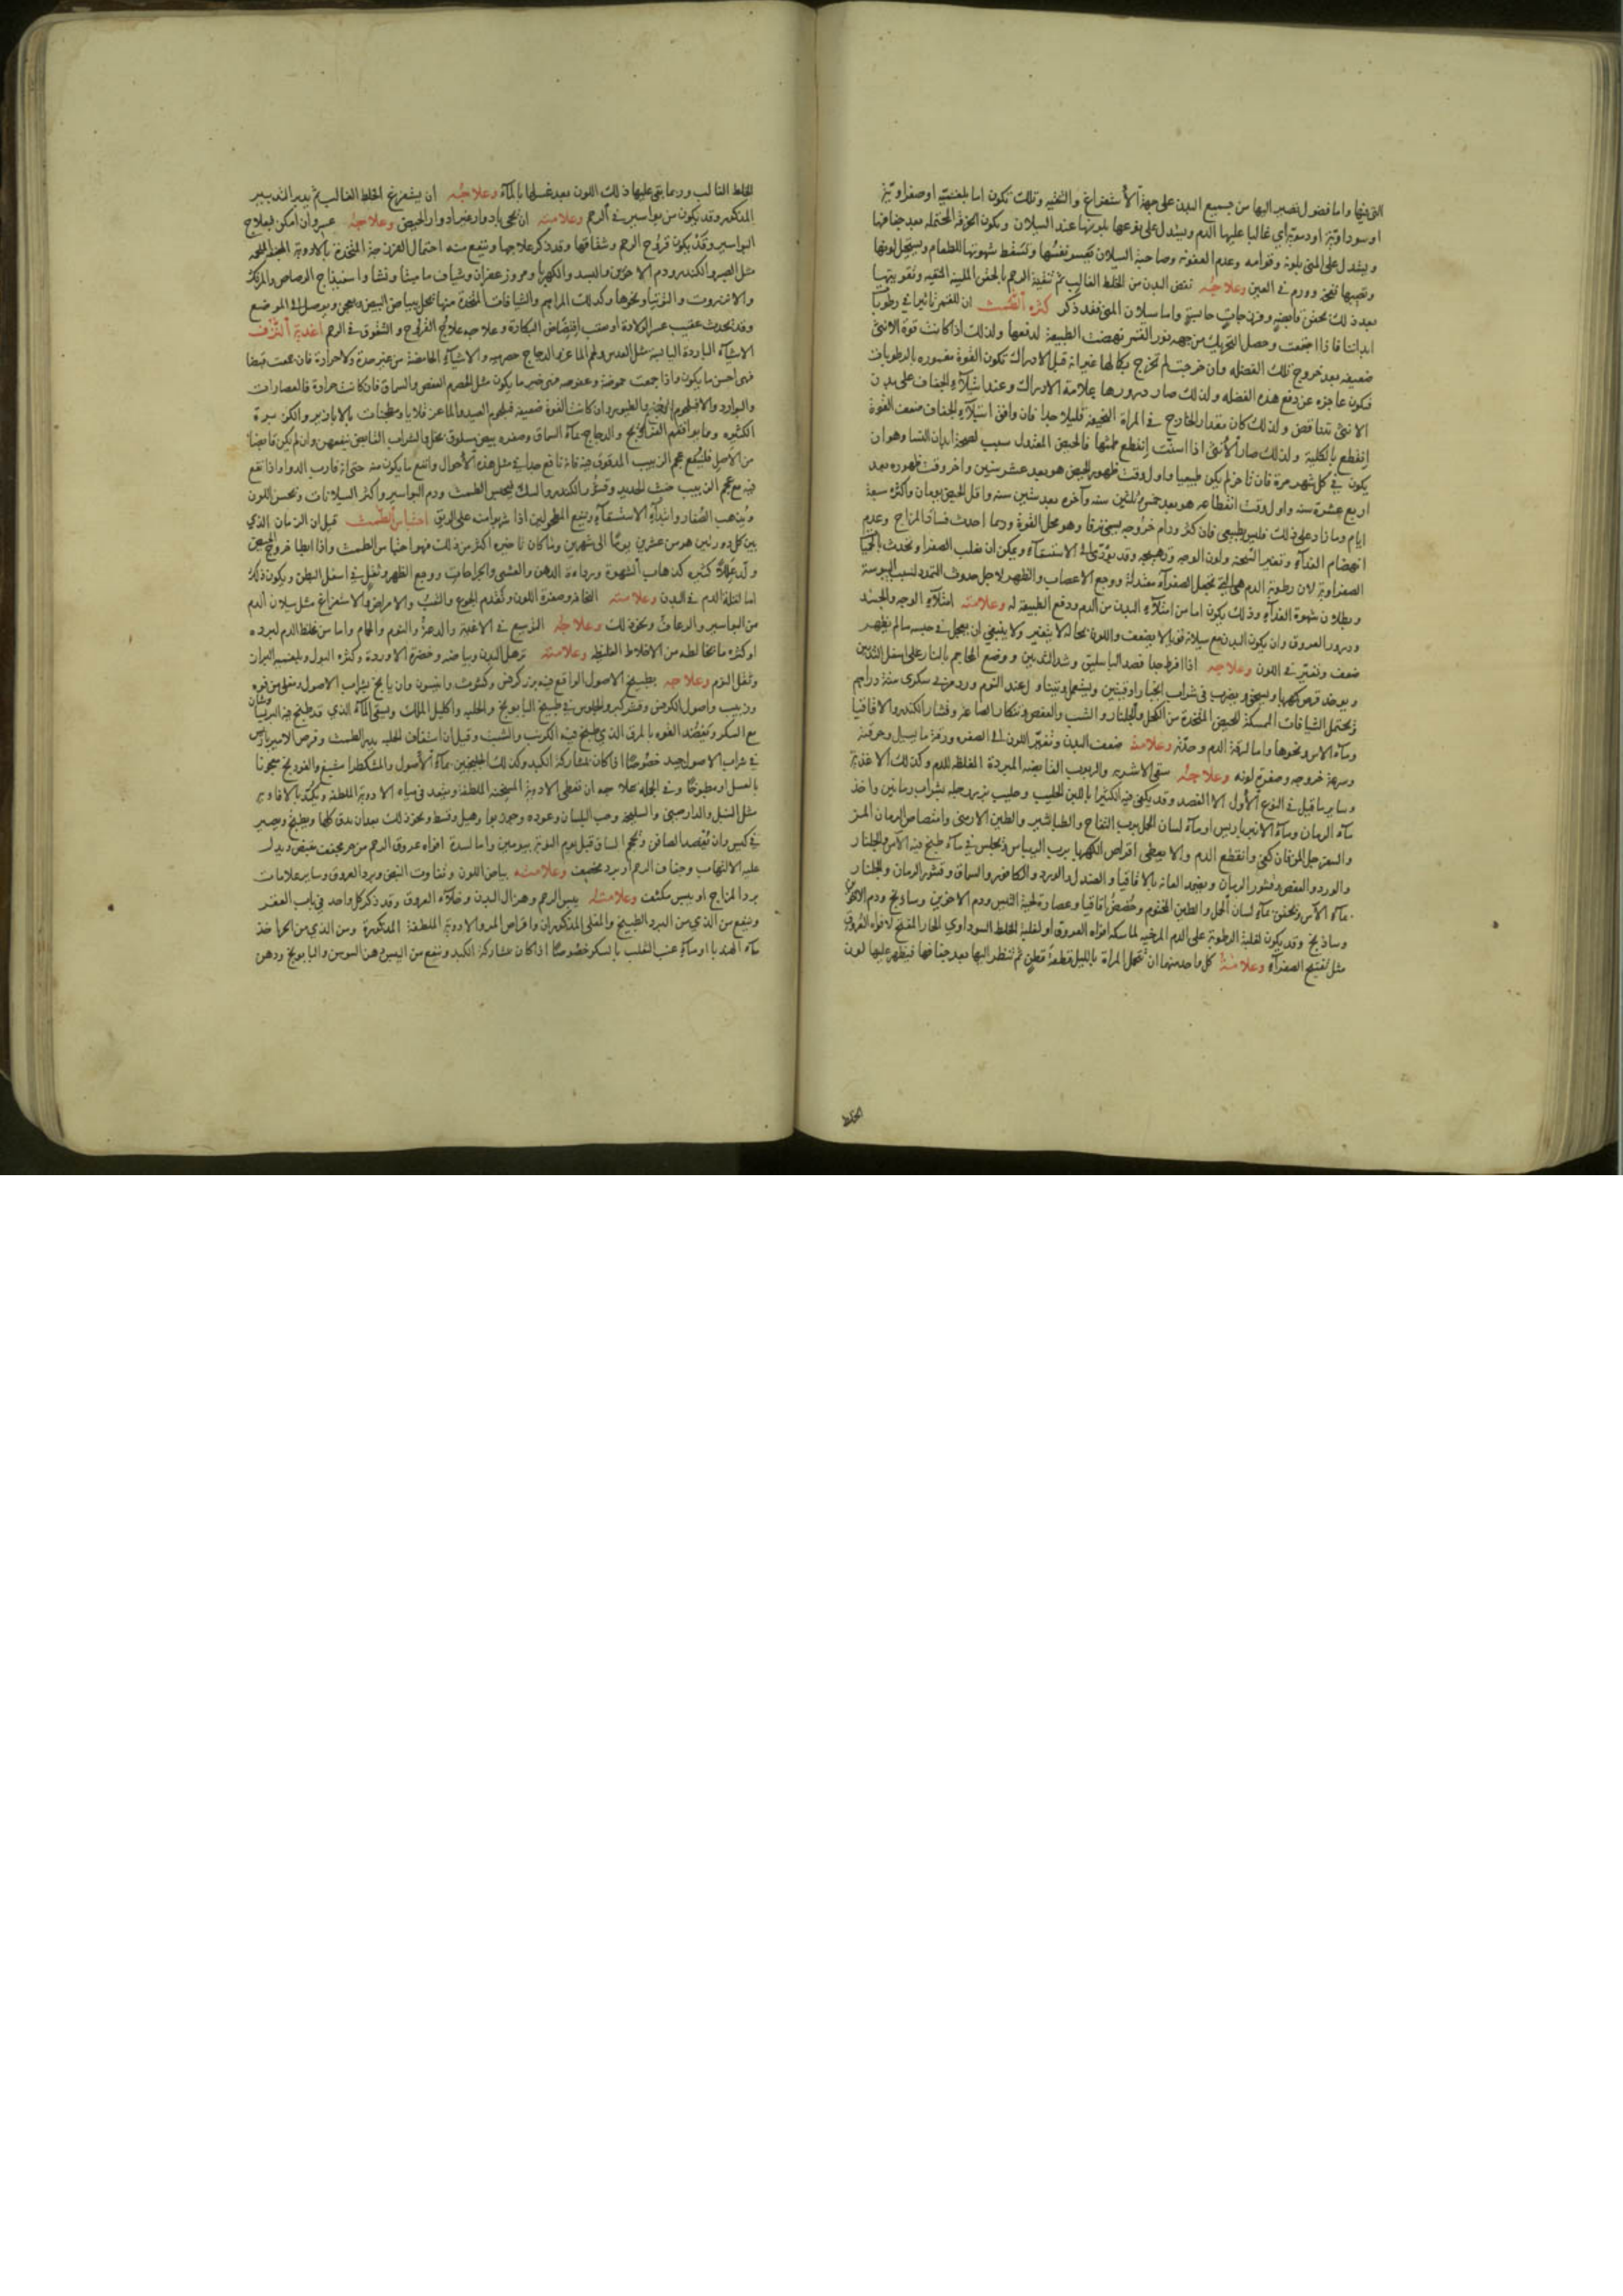 التى فيها واما فضول تصير اليها من جميع البدن على جهة الاستفراغ والتنقيه وتلك تكون اما بلغميه او صفراويه
او سوداويه او دمويه اى غالبا عليها الدم ويستدل على نوعها بلونها عند السيلان وبكون الخرقة المحتمله بعد جفافها
ويستدل على المنى بلونه وقوامه وعدم العفونه وصاحبة السيلان يعسر نفسها وتسقط شهوتها للطعام ويستحيل لونها
ويصيبها نفخه وورم فى العين وعلاجه نفض البدن من الخلط الغالب ثم تنقية الرحم بالحقن الملينه المنقيه وتقويتها
بعد ذلك بحقن قابضه وفرزجات حابسة واما سيلان المنى فقد ذكر كثرة الطمث ان للقمر تاثيرا فى رطوبات
ابداننا فاذا اجتمعت وحصل التحريك من جهة نور القمر نهضت الطبيعة لدفعها ولذلك اذا كانت قوة الانثى
ضعيفه بعد خروج تلك الفضله وان خرجت لم تخرج بكمالها غير انه قبل الادراك تكون القوة مغموره بالرطوبات
فيكون عاجزه عن دفع هذه الفضله ولذلك صار درورها علامة الادراك وعند استيلاء الجفاف على بدن
الانثى تتناقص ولذلك كان مقدار الخارج فى المراة النحيفة قليلا جدا فان وافق استيلاء الجفاف ضعف القوة
انقطع بالكلية ولذلك صار الانثى اذا اسنت انقطع طمثها فالحيض المعتدل سبب لصحة ابدان النسا وهو ان
يكون فى كل شهر مرة فان تاخر لم يكن طبيعيا واول وقت ظهور الحيض هو بعد عشر سنين واخر وقت ظهوره بعد
اربع عشرة سنه واول وقت انقطاعه هو بعد خمس وثلثين سنه وآخره بعد ستين سنه واقل الحيض يومان واكثره سبعة
ايام وما زاد على ذلك فليس بطبيعى فان كثر ودام خروجه يسمى نزفا وهو محل القوة وربما احدث فساد المزاج وعدم
انهضام الغذاء وتغير السحنة ولون الوجه وتهيجه وقد يؤدى الى الاستسقاء ويمكن ان يغلب الصفرا وتحدث الحميات
الصفراوية لان رطوبة الدم هى التى تجعل الصفراء معتدلة ووجع الاعصاب والظهر لاجل حدوث التمدد لسبب اليبوسة
وبطلان شهوة الغذاء وذلك يكون اما من امتلاء البدن من الدم ودفع الطبيعة له وعلامته امتلاء الوجه والجسد
ودرور العروق وان يكون البدن مع سيلانه قويا لا يضعف واللون بحاله لا يتغير ولا ينبغى ان يعجل فى حبسه ما لم يظهر
ضعف وتغير فى اللون وعلاجه اذا افرط جدا فصد الباسليق وشد الثديين ووضع المحاجم بالنار على اسفل الثديين
ويحتمل الشيافات الممسكة للحيض المتخذة من الكحل والجلنار والشب والعفص وقشار الكندر والاقاقيا
ومآء الآس ونحوها واما لرقة الدم وحدته وعلامته ضعف البدن وتغير اللون الى الصفره ورقة ما يسيل وحرقته
وسرعة خروجه وصفرة لونه وعلاجه سقى الاشربه والربوب القابضه المبردة المغلظه للدم وكذلك الاغذية
وساير ما قيل فى النوع الاول الا الفصد
مآء الرمان ومآء الانبرباريس او مآء لسان الحمل برب التفاح والطباشير والطين الارمنى وامتصاص الرمان المز
والسفرجل المز فان كفى وانقطع الدم والا يعطى اقراص الكهربا برب الريباس وتجلس فى مآء طبيخ فيه الآس والجلنار
والورد والعفص وقشور الرمان وتضمد العانه بالاقاقيا والصندل والورد والكافور والسماق وقشور الرمان والجلنار
بمآء الآس وتحقن بمآء لسان الحمل والطين المختوم وحضض واقاقيا وعصارة لحية التيس ودم الاخوين
وساذنج وقد يكون لغلبة الرطوبة على الدم المرخيه لماسكه افواه العروق او لغلبة الخلط السوداوى الحار المفتح لافواه العروق
مثل تفتيح الصفراء وعلامته كل واحد منهما ان تحمل المراة بالليل قطعة قطن ثم تنظر اليها بعد جفافها فيظهر عليها لون
الخلط
الخلط الغالب وربما بقى عليها ذلك اللون بعد غسلها بالمآء وعلاجه ان يستفرغ الخلط الغالب ثم يدبر التدبير
المذكور وقد يكون من بواسير فى الرحم وعلامته ان تجى بادوار غير ادوار الحيض وعلاجه عسر وان امكن فبعلاج
البواسير وقد يكون قروح الرحم وشقاقها وقد ذكر علاجها وينفع منه احتمال الفرزجة المتخذة بالادوية المجففه
مثل الصبر والكندر ودم الاخوين والبسد والكهربا ومر وزعفران وشياف ماميثا ونشا واسفيداج الرصاص والمرتك
والانزروت والتوتيا ونحوها وكذلك المراهم والشيافات المتخذة منها تحل ببياض البيض وتوصل الى الموضع
وقد تحدث عقيب عسر الولادة او عقب افتضاض البكارة وعلاجه علاج القروح والشقوق فى الرحم اغذية النزف
الاشياء الباردة اليابسة مثل العدس ولحم الماعز والدجاج حصرميه والاشياء الحامضة من غير حدة ولا حرارة فان جمعت قبضا
فهى احسن ما يكون واذا جمعت حموضة وعفوصه فهى خير ما يكون مثل الحصرم العفص والسماق فان كانت حرارة فالعصارات
والبوارد والا فبلحوم والطيور وان كانت القوة ضعيفه فبلحوم الصيد والماعز قلايا ومطجنات بالابازير والكزبرة
الكثيره وما يوافقهم الفراريج والدجاج بمآء السماق وصفرة بيض مسلوق بخل والشراب القابض ينفعهن وان لم يكن قابضا
من الاصل فلينقع عجم الزبيب المدقوق فيه فانه نافع جدا فى مثل هذه الاحوال وانفع ما يكون منه حتى انه قارب الدوا واذا نقع
فيه مع عجم الزبيب خبث الحديد وقشور الكندر والسك ليحبس الطمث ودم البواسير واكثر السيلانات وتحسن اللون
ويذهب الصفار وابتداء الاستسقاء وينفع المطحولين اذا شربوا منه على الريق احتباس الطمث قيل ان الزمان الذي
بين كل دورتين هو من عشرين يوما الى شهرين وما كان تاخيره اكثر من ذلك فهو احتباس الطمث واذا ابطا خروج الحيض
ولد عللا كثيره كذهاب الشهوة ورداءة الذهن والغشى والجراحات ووجع الظهر وثقل فى اسفل البطن ويكون ذلك
اما لقلة الدم فى البدن وعلامته النحافه وصفرة اللون وتقدم الجوع والتعب والامراض والاستفراغ مثل سيلان الدم
من البواسير والرعاف ونحو ذلك وعلاجه التوسيع فى الاغذية والدعة والنوم والحمام واما من غلظ الدم لبرده
او كثرة ما يخالطه من الاخلاط الغليظه وعلامته ترهل البدن وبياضه وخضرة الاوردة وكثرة البول وبلغمية البراز
وثقل النوم وعلاجه بطبيخ الاصول الواقع فيه بزر كرفس وكشوث وانيسون ورازيانج بشراب الاصول
وزبيب واصول الكرفس وقشر كبر والجلوس فى طبيخ البابونج والحلبه واكليل الملك وسقى المآء الذى قد طبخ فيه
مع السكر وتضمد القوه بالمرق الذى طبخ فيه الكرنب والشبث وقيل ان استفاف الحلبه يدر الطمث وقرص الاميرباريس
فى شراب الاصول جيد خصوصا اذا كان بمشاركة الكبد وكذلك الجلنجبين بمآء الاصول والمشكطرامشيع والفودنج معجونا
بالعسل او مطبوخا وفى الجمله علاجه ان تعطى الادوية المسخنه الملطفة وتقعد فى مياه الادوية الملطفه وتكمد بالافاويه
مثل السنبل والدارصينى والسليخه وحب البلسان وعوده وجوزبوا وهيل وقسط ونحو ذلك بعد ان يدق كلها ويطبخ ويصير
فى كيس وان تفصد الصافن وتحجم الساق قبل يوم النوبة بيومين واما لسدة افواه عروق الرحم من حر مجفف مقبض ويدل
عليه الالتهاب وجفاف الرحم او برد مخصف وعلامته بياض اللون وتفاوت النبض وبرد العروق وساير علامات
برد المزاج او يبس مكثف وعلامته يبس الرحم وهزال البدن وخلاء العروق وقد ذكر كل واحد فى باب العقر
وينفع من الذى من البرد الطبيخ والمغلى المذكوران واقراص المر والادوية الملطفة المذكورة ومن الذى من الحر اخذ
مآء الهندبا او مآء عنب الثعلب بالسكر خصوصا اذا كان بمشاركة الكبد وينفع من اليبس دهن السوسن والبابونج ودهن